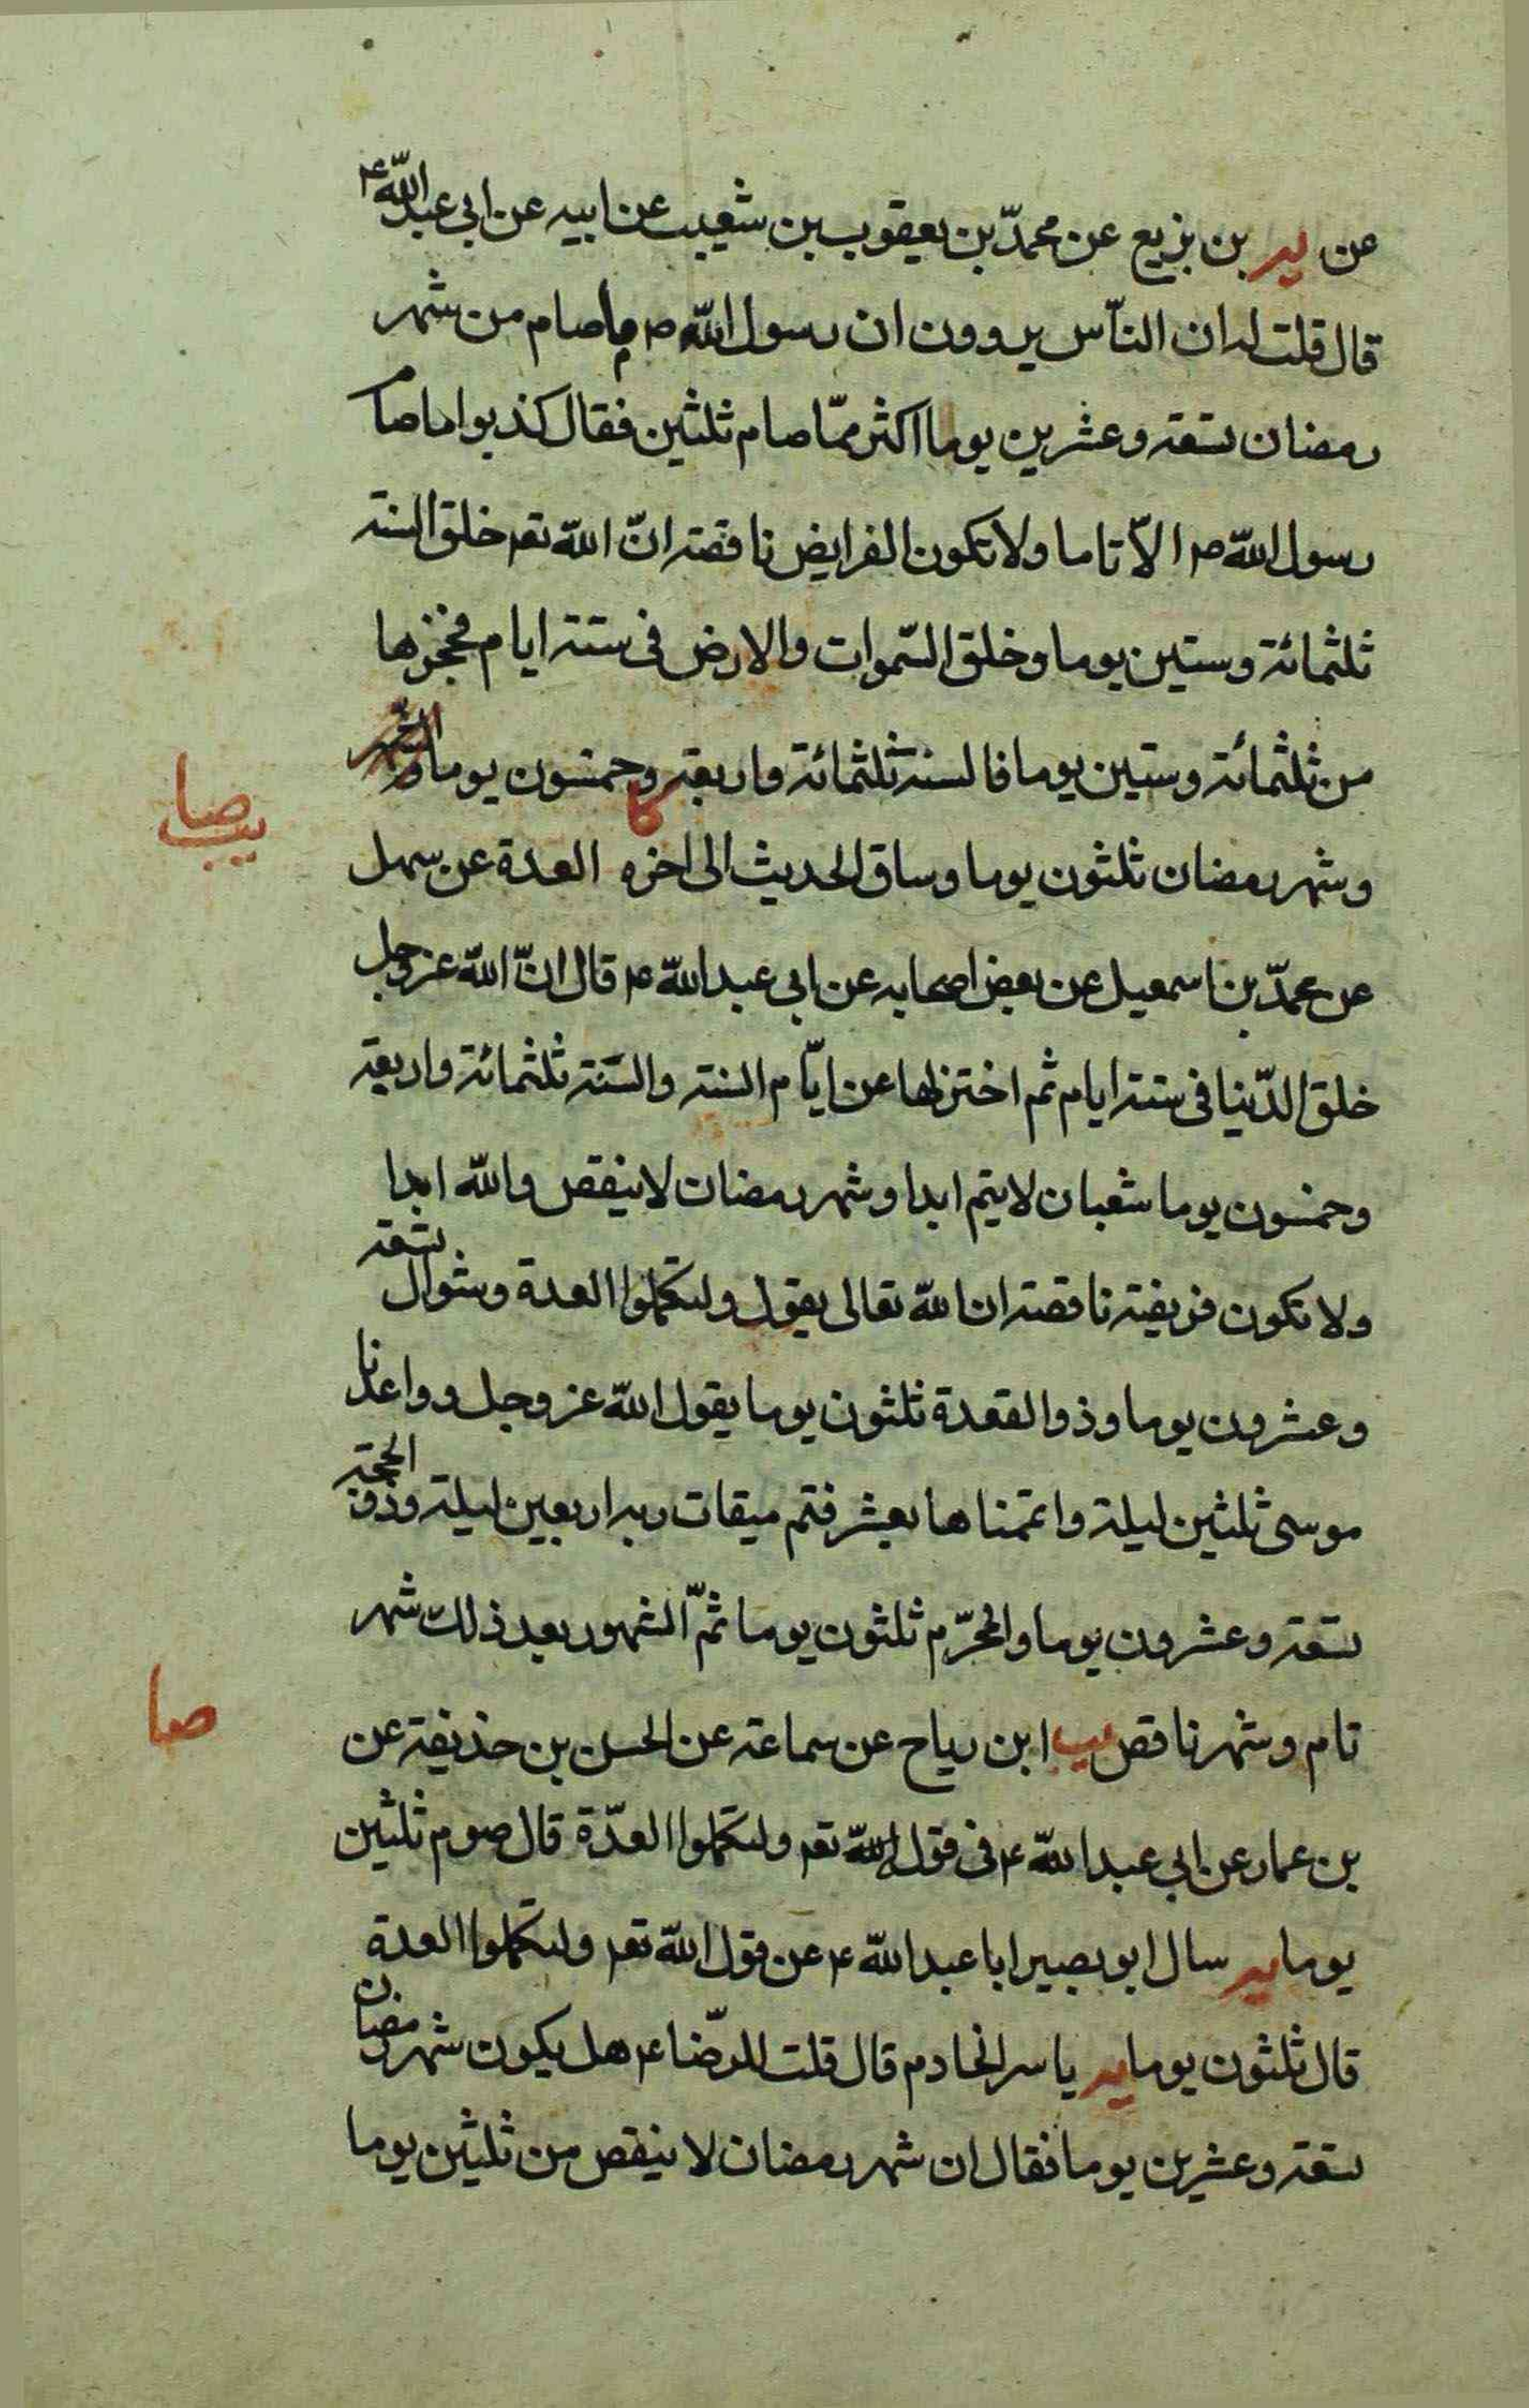 عن ير بن بزيع عن محمّد بن يعقوب بن شعيب عن ابيه عن ابي عبد اللّه ع
قال قلت له ان النّاس يروون ان رسول اللّه ص ما صام من شهر
رمضان تسعة وعشرين يوما اكثر ممّا صام ثلثين فقال كذبوا ما صام
رسول اللّه ص الّا تاما ولا تكون الفرايض ناقصة انّ اللّه تعم خلق السنة
ثلثمائة وستين يوما وخلق السّموات والارض فى ستة ايام فحجزها
من ثلثمائة وستين يوما فالسنة ثلثمائة واربعة وخمسون يوما
وشهر رمضان ثلثون يوما وساق الحديث الى اخره كا العدة عن سهل
عن محمّد بن اسمعيل عن بعض اصحابه عن ابى عبد اللّه ع قال انّ اللّه عز وجل
خلق الدّنيا فى ستة ايام ثم اختزلها عن ايّام السنة والسّنة ثلثمائة واربعة
وخمسون يوما شعبان لا يتم ابدا وشهر رمضان لا ينقص واللّه ابدا
ولا تكون فريضة ناقصة ان اللّه تعالى يقول ولتكملوا العدة وشوال تسعة
وعشرون يوما وذو القعدة ثلثون يوما يقول اللّه عز وجل وواعدنا
موسى ثلثين ليلة واتممناها بعشر فتم ميقات ربه اربعين ليلة وذو الحجة
تسعة وعشرون يوما والمحرّم ثلثون يوما ثمّ الشهور بعد ذلك شهر
تام وشهر ناقص يب ابن رياح عن سماعة عن الحسن بن حذيفة عن
بن عمار عن ابي عبد اللّه ع فى قول اللّه تعم ولتكملوا العدّة قال صوم ثلثين
يوما ير سال ابو بصير ابا عبد اللّه ع عن قول اللّه تعم ولتكملوا العدة
قال ثلثون يوما ير ياسر الخادم قال قلت للرّضا ع هل يكون شهر رمضان
تسعة وعشرين يوما فقال ان شهر رمضان لا ينقص من ثلثين يوما
صا
يب
صا